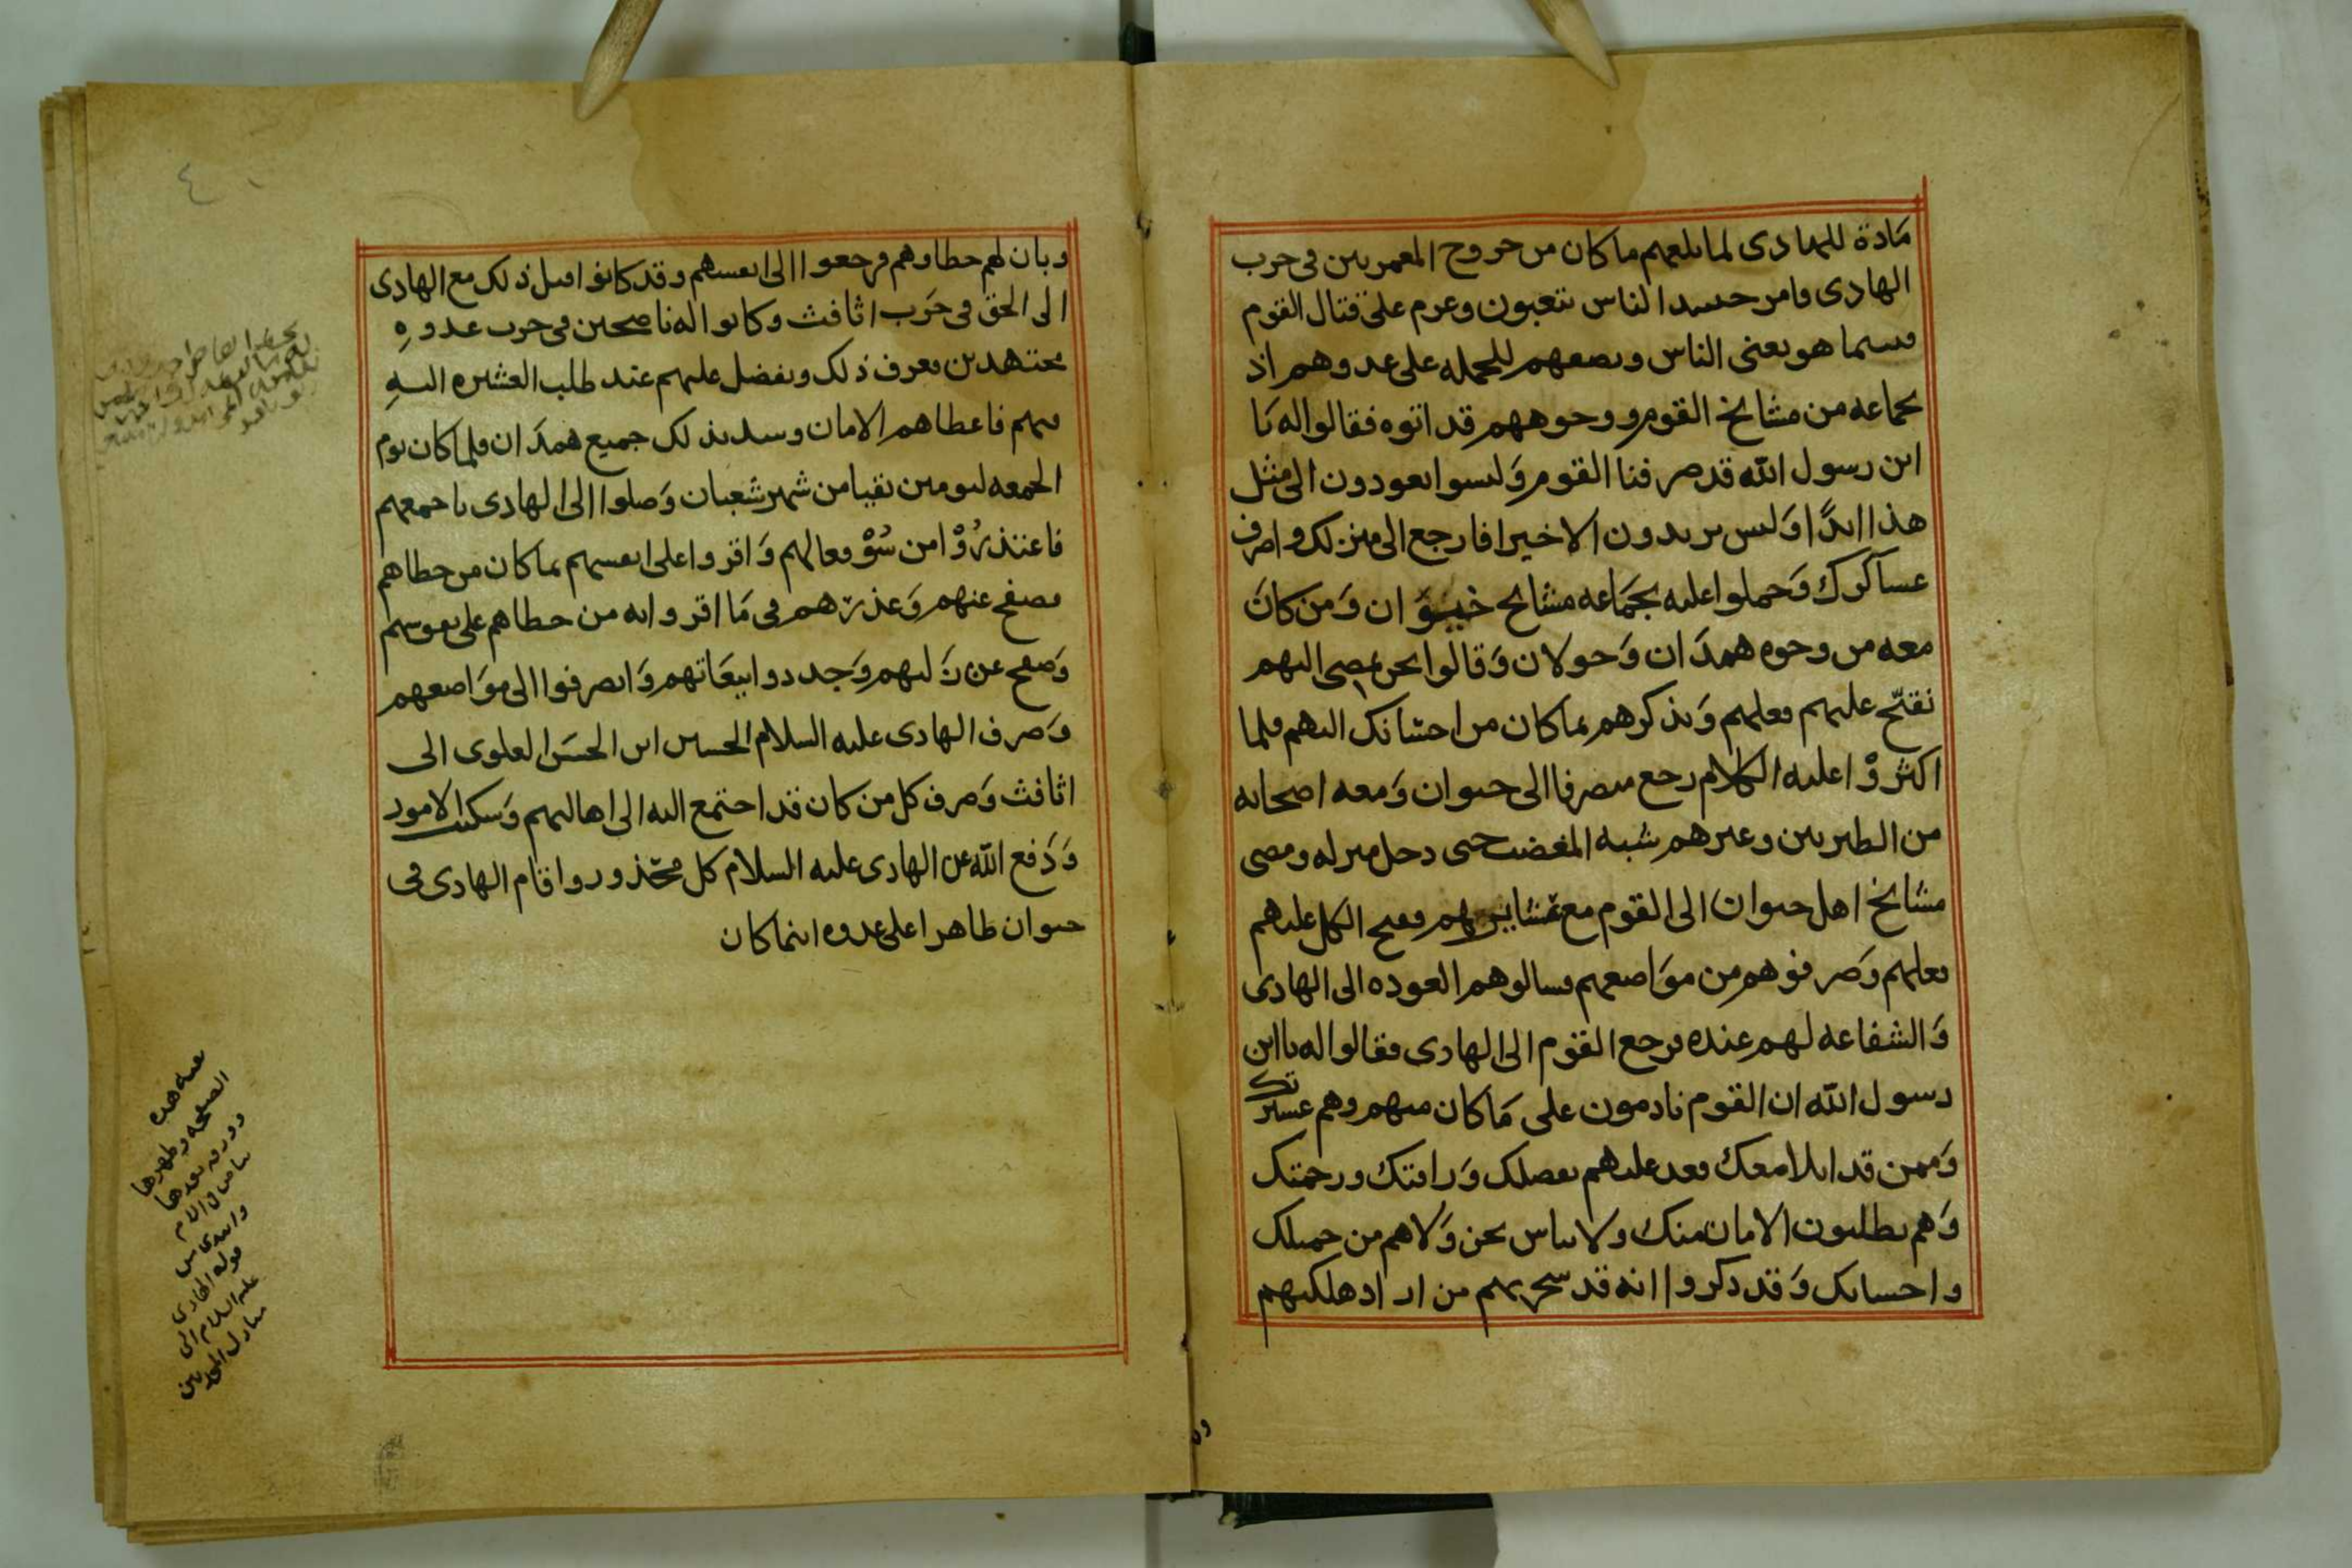 مادة للهادى لما بلغهم ما كان من خروج المعمريين فى حرب
الهادى وامر حسد الناس يتعبون وعزم على قتال القوم
فبينما هو يعنى الناس ويصفهم للحمله على عدوهم اذ
بجماعه من مشايخ القوم ووجوههم قد اتوه فقالوا له يا
ابن رسول الله قد صرفنا القوم وَليسوا يعودون الى مثل
هذا ابدًا وَليس يريدون الا خيرا فارجع الى منزلك واصرف
عساكرك وَحملوا عليه بجَماعه مشايخ خيوَان وَمن كان
معه من وجوه همدَان وَخولان وَقالوا نحن نمضى اليهم
نقبّح عليهم فعلهم وَنذكرهم بما كان من احسانك اليهم فلما
اكثرُوْا عليه الكلام رجع منصرفا الى خيوان وَمعه اصحابه
من الطبريين وغيرهم شبه المغضب حتى دخل منزله ومضى
مشايخ اهل خيوان الى القوم مع عشايرهم فقبح الكل عليهم
فعلهم وَصرفوهم من موَاضعهم فسالوهم العوده الى الهادى
وَالشفاعه لهم عنده فرجع القوم الى الهادى فقالوا له يا ابن
رسول الله ان القوم نادمون على مَا كان منهم وهم عشيرتك
وَممن قد ابلا معك فعد عليهم بفضلك وَرافتك ورحمتك
وَهم يطلبون الامان منك ولا نياس نحن وَلا هم من جميلك
واحسانك وَقد ذكروا انه قد سخر بهم من اراد هلكتهم
وبان لهم خطاوهم فرجعوا الى انفسهم وقد كانوا قبل ذلك مع الهادى
الى الحق فى حَرب اثافث وكانوا له ناصحين فى حرب عدوهِ
مجتهدين فعرف ذلك وتفضل عليهم عند طلب العشيره اليهِ
فيهم فاعطاهم الامان وسد بذلك جميع همدَان فلما كان يوم
الجمعه ليومين بقيا من شهر شَعبان وَصلوا الى الهادى باجمعهم
فاعتذرُوْا من سُوْ فعالهم وَاقروا على انفسهم بما كان من خطاهم
فصفح عنهم وَعذرَهم فى مَا اقروا به من خطاهم على نفوسهم
وَصفح عن زَلتهم وَجددوا بيعَاتهم وَانصرفوا الى موَاضعهم
وَصرف الهادى عليه السلام الحسين ابن الحسَن العلوى الى
اثافث وَصرف كل من كان قد اجتمع اليه الى اهاليهم وَسكنت الامور
وَدَفع الله عن الهادى عليه السلام كل محّذور واقام الهادى فى
خيوان ظاهرا على عدوه اينما كان
٤
هذه
الصفحه وظهرها
وورقه بعدها
بياض فى الام
وابتدى من
قوله الهادى
عليه السلام الى